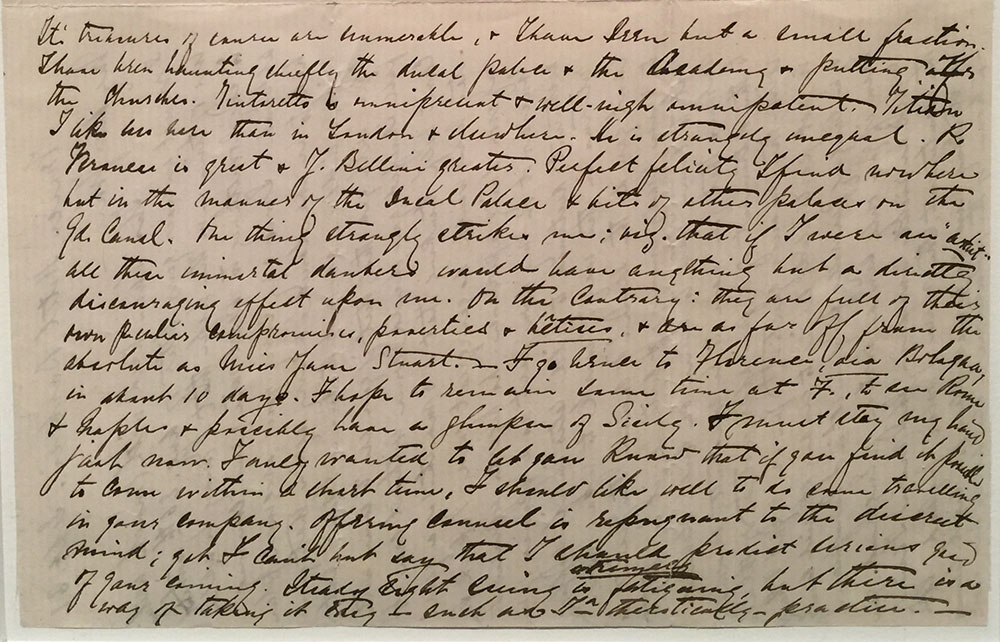 Its treasures of course are innumerable, & I have seen but a small fraction.
I have been haunting chiefly the ducal palace & the Academy & putting off
the Churches. Tintoretto is omnipresent & well-nigh omnipotent. Titian
I like less here than in London & elsewhere. He is strangely unequal. P.
Veronese is great & J. Bellini greater. Perfect felicity I find nowhere
but in the manner of the Ducal Palace & bits of other palaces on the
Gd. Canal. One thing strongly strikes me; viz. that if I were an "artist"
all these immortal daubers would have anything but a directly
discouraging effect upon me. On the Contrary: they are full of their
own peculiar compromises, poverties & bêtises, & are as far off from the
absolute as Miss Jane Stuart. — I go hence to Florence, via Bologna,
in about 10 days. I hope to remain some time at F., to see Rome
& Naples & possibly have a glimpse of Sicily. I must stay my hand
just now. I only wanted to let you know that if you find it possible
to come within a short time, I should like well to do some travelling
in your company. Offering counsel is repugnant to the discreet
mind; yet I can't but say that I should predict serious good
of your coming. Steady Sight Seeing is extremely fatiguing, but there is a
way of taking it easy — such as I — theoretically — practise. —